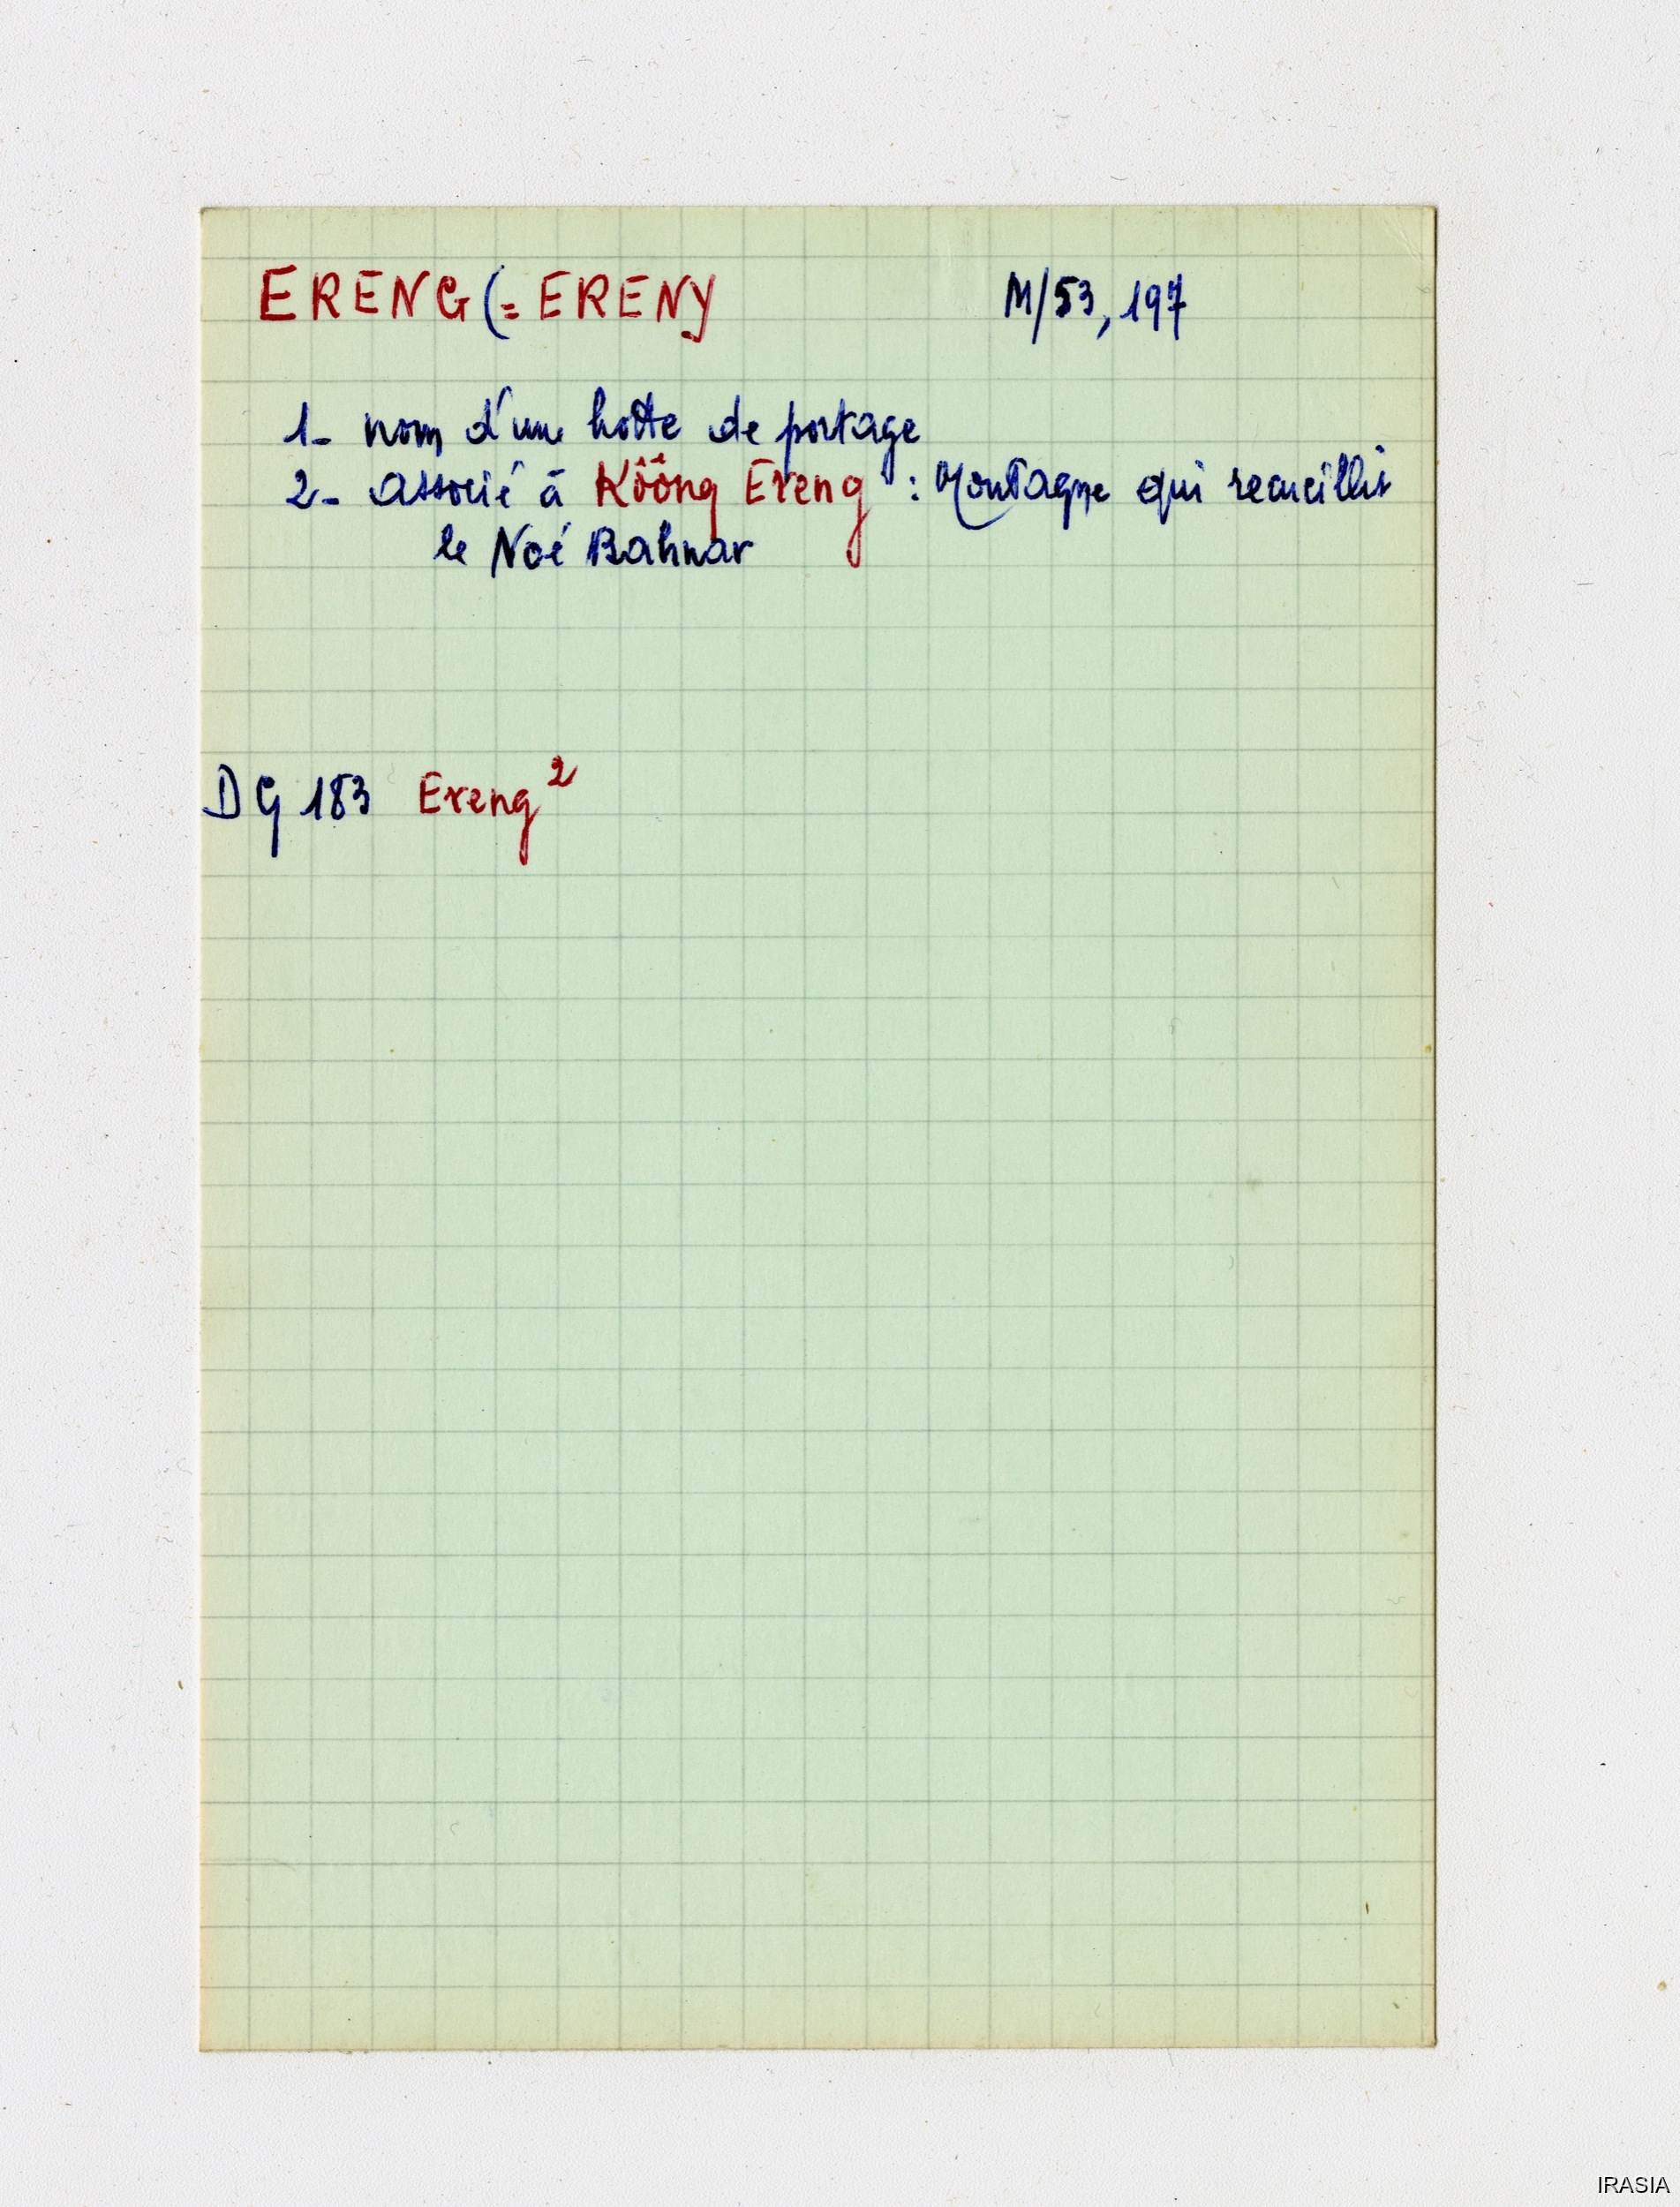 ERENG (= ERENY M/53, 197
1- nom d'une hotte de portage
2- associé à Kôông Ereng : Montagne qui recueillit
le Noé Bahnar
DG 183 Ereng²
IRASIA